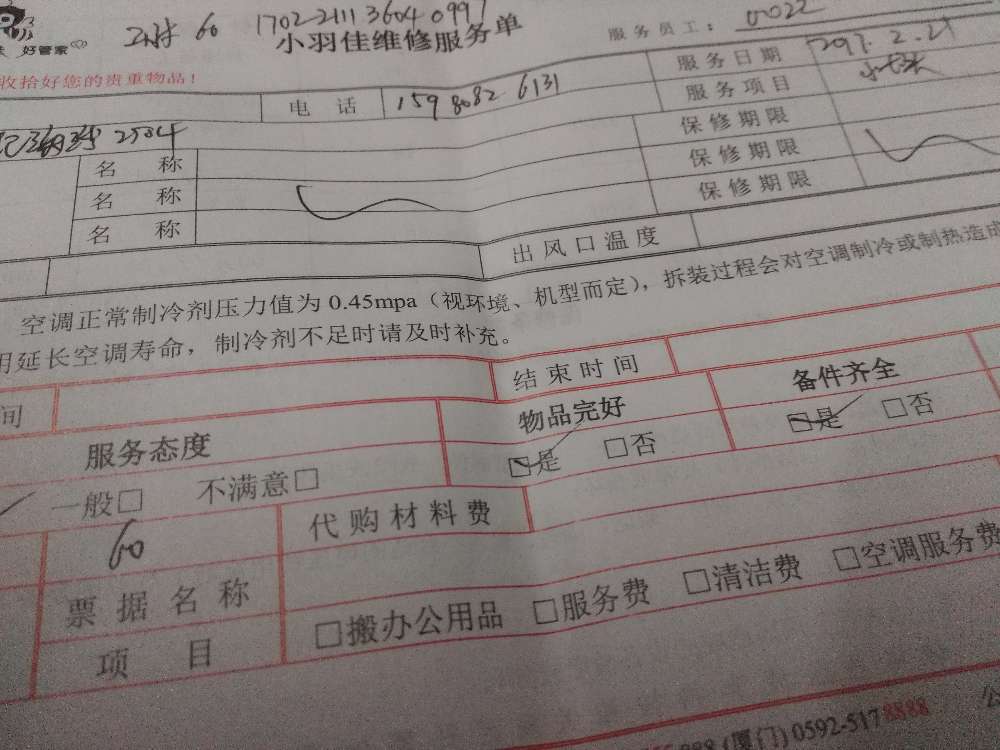 60 1702 2111 3604 0997
好管家
小羽佳维修服务单
服务员工: 0022
收拾好您的贵重物品!
服务日期 2.21
电话 159 8082 6131
服务项目
2504
保修期限
名称
保修期限
名称
保修期限
名称
出风口温度
空调正常制冷剂压力值为 0.45mpa(视环境、机型而定),拆装过程会对空调制冷或制热造成
用延长空调寿命,制冷剂不足时请及时补充。
间
结束时间
服务态度
物品完好
备件齐全
一般□ 不满意□
□是 □否
□是 □否
60
代购材料费
票据名称
项目
□搬办公用品 □服务费 □清洁费 □空调服务费
888 (厦门) 0592-5178888